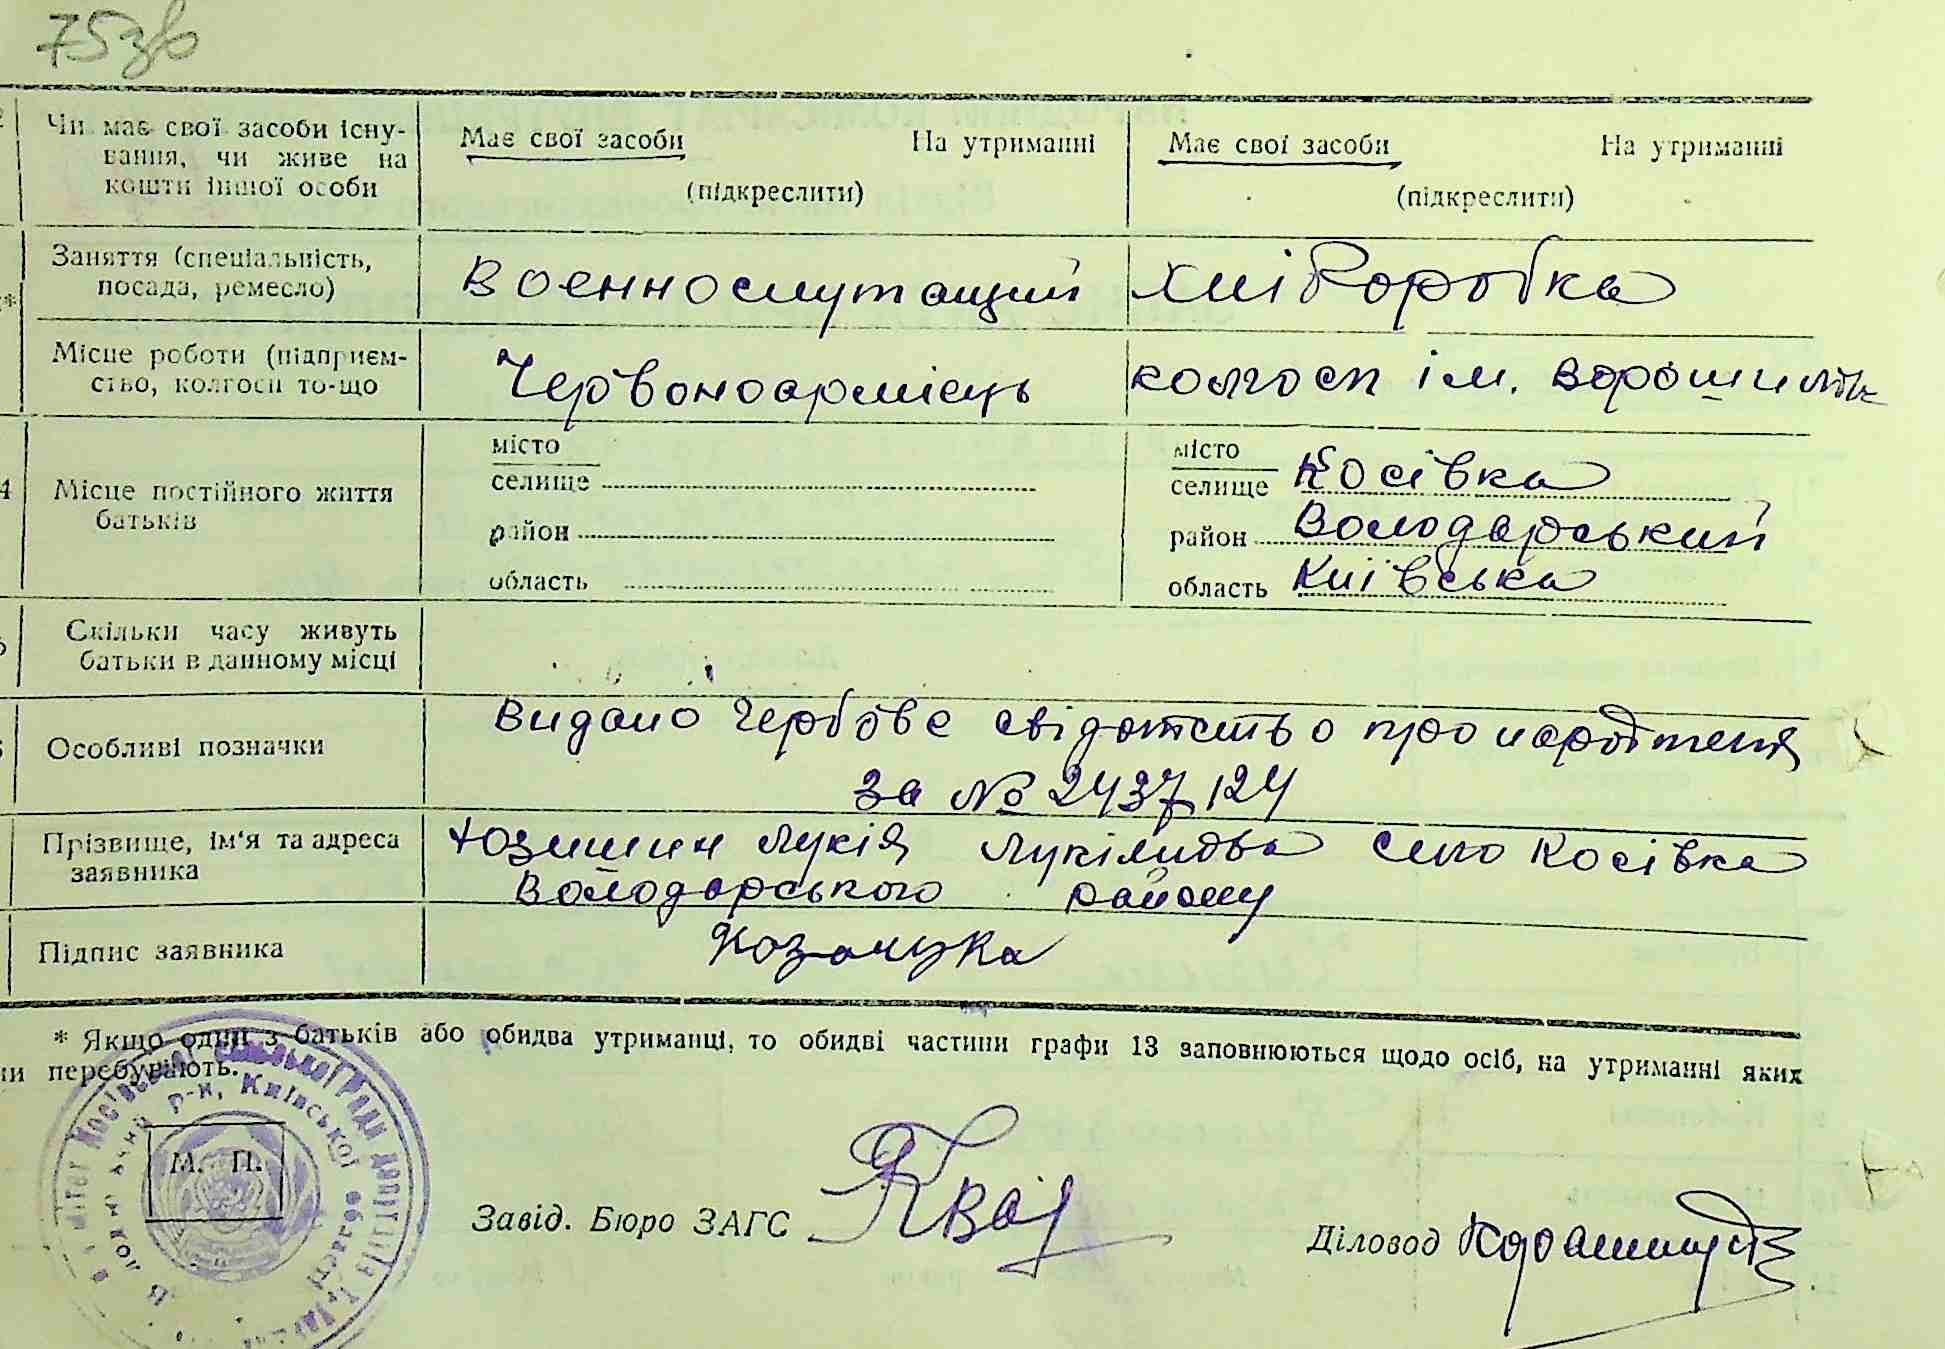 75зв
Чи має свої засоби існу- Має свої засоби На утриманні Має свої засоби На утриманні
вання, чи живе на
кошти іншої особи (підкреслити) (підкреслити)
Заняття (спеціальність, Военнослужащий хліборобка
посада, ремесло)
Місце роботи (підприєм- Червоноармієць колгосп ім. Ворошилова
ство, колгосп то-що
4 Місце постійного життя місто місто
батьків селище селище Косівка
район район Володарський
область область Київська
Скільки часу живуть
батьки в данному місці
Особливі позначки Видано гербове свідотство про народження
за № 2437124
Прізвище, ім'я та адреса Юзишин Лукія село Косівка
заявника Володарського району
Підпис заявника
* Якщо один з батьків або обидва утриманці, то обидві частини графи 13 заповнюються щодо осіб, на утриманні яких
ни перебувають.
Косівської сільської Ради депутатів
р-н, Київської області
М. П.
Завід. Бюро ЗАГС
Діловод